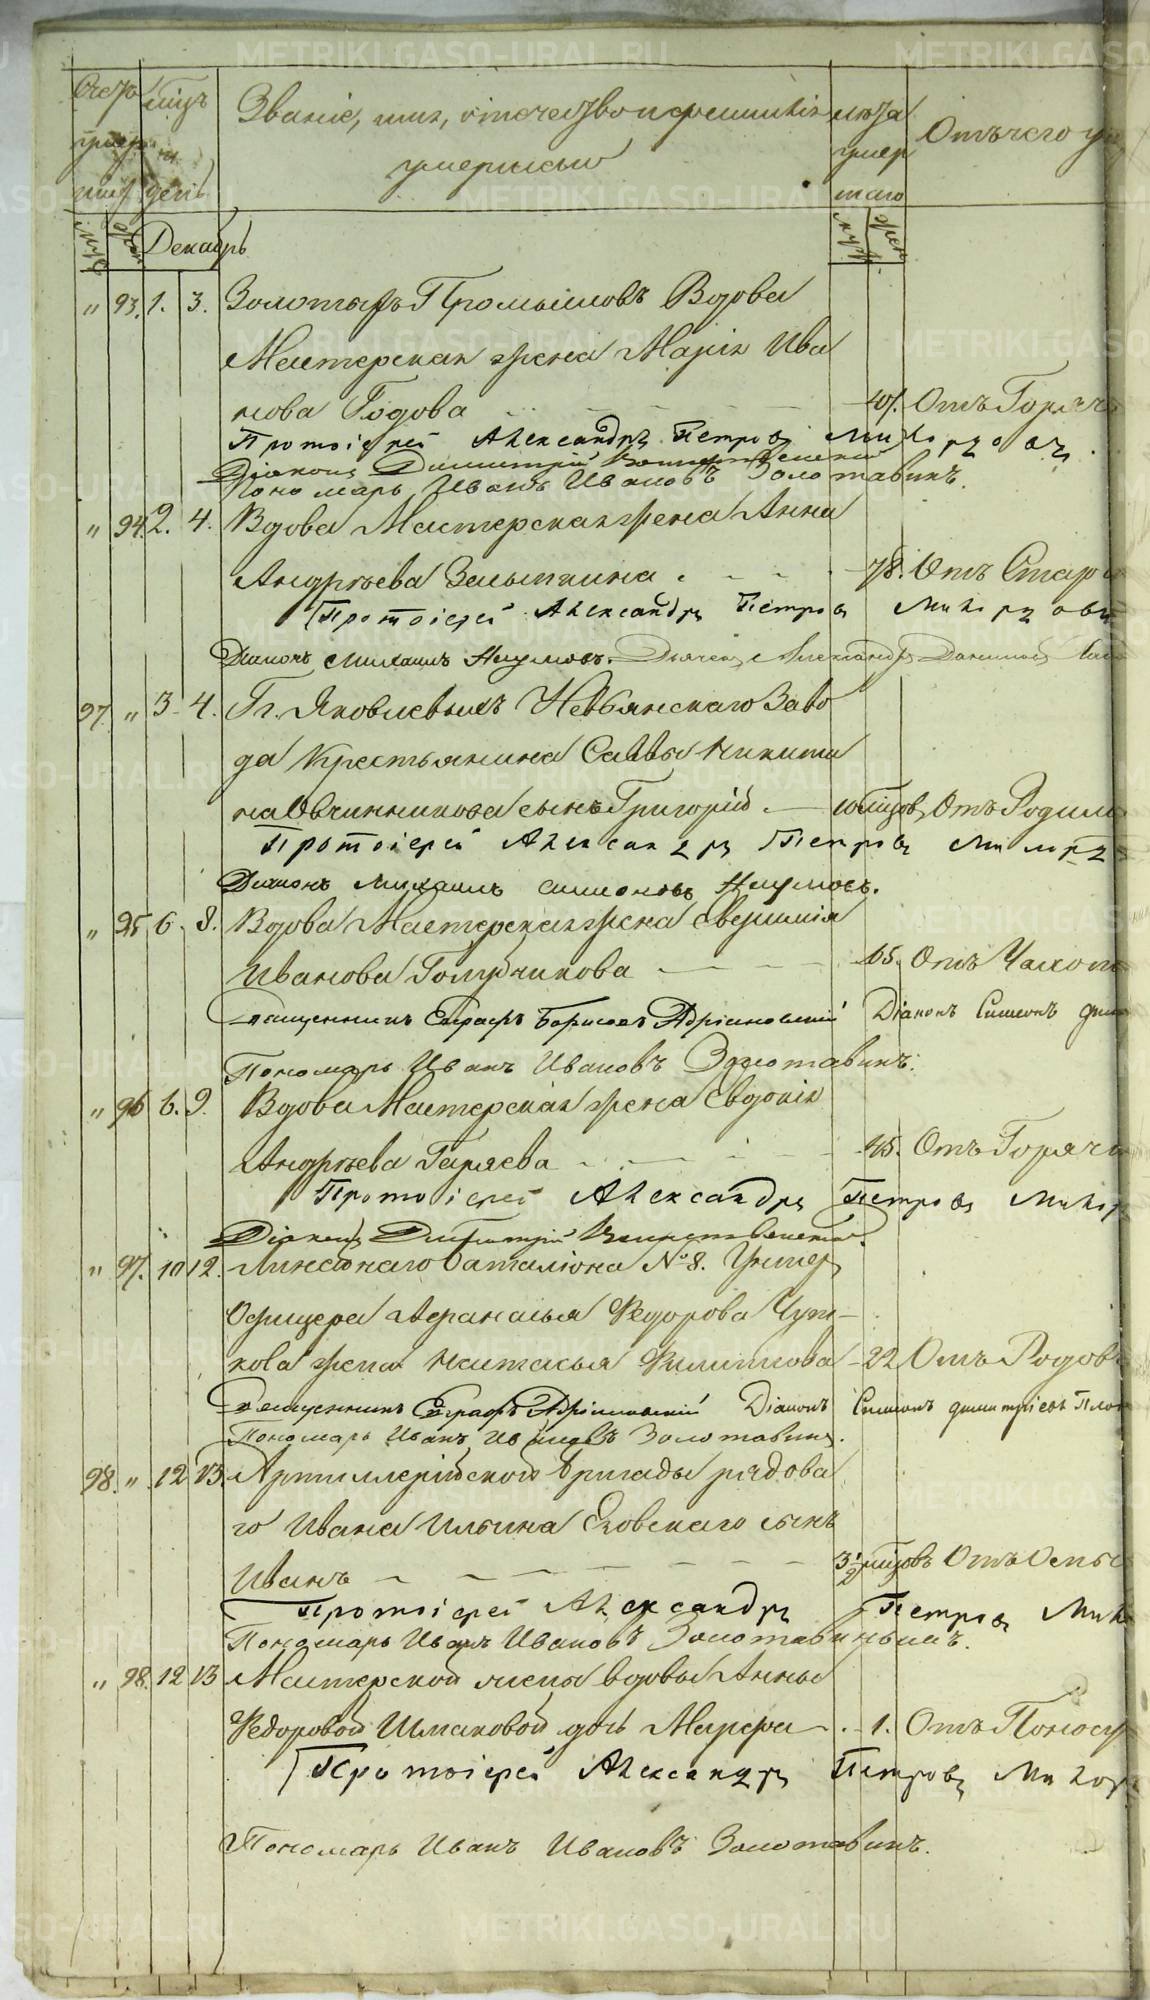 Счетъ мѣцъ Званіе, имя, отчество и фамилія лѣта Отъ чего
умер и умершихъ умер
шихъ день шаго
муж жен Декабрь муж жен
" 93. 1. 3. Золотыхъ Промысловъ Вдова
Мастерская жена Марія Ива
нова Годова 40. Отъ Горяч
Протоіерей Александръ Петровъ
Діаконъ Димитрій
Пономарь Иванъ Ивановъ Золотавинъ.
" 94. 2. 4. Вдова Мастерская жена Анна
Андрѣева 78. Отъ Стар
Протоіерей Александръ Петровъ
Діаконъ Михаилъ Наумовъ. Дьячекъ Александръ
97. " 3 4. Гг. Яковлевыхъ Невьянскаго Заво
да Крестьянина Саввы Никити
на Овчинникова сынъ Григорій. мѣцовъ Отъ Родим
Протоіерей Александръ Петровъ
Діаконъ Михаилъ Симеоновъ Наумовъ.
" 95 6. 8. Вдова Мастерская жена
Иванова Голубчикова 65. Отъ Чахот
Священникъ Евграфъ Борисовъ Адріановскій Діаконъ Симеонъ
Пономарь Иванъ Ивановъ Золотавинъ.
" 96 6. 9. Вдова Мастерская жена Евдокія
Андрѣева Гаряева 45. Отъ Горяч
Протоіерей Александръ Петровъ
Діаконъ Димитрій
" 97. 10 12. Линейнаго Баталіона № 8. Унтеръ
Офицера Афанасья Федорова Чуп-
кова жена Настасья Филипова 22 Отъ Родов
Священникъ Евграфъ Адріановскій Діаконъ Симеонъ Димитріевъ
Пономарь Иванъ Ивановъ Золотавинъ.
98. " 12 13. Артиллерійской Бригады рядова
го Ивана Ильина сынъ
Иванъ 3½ мѣцовъ Отъ Оспы
Протоіерей Александръ Петровъ
Пономарь Иванъ Ивановъ
" 98. 12 13 Мастерской жены вдовы Анны
Федоровой Шмаковой дочь Марфа 1. Отъ Поноса
Протоіерей Александръ Петровъ
Пономарь Иванъ Ивановъ Золотавинъ.
METRIKI.GASO-URAL.RU